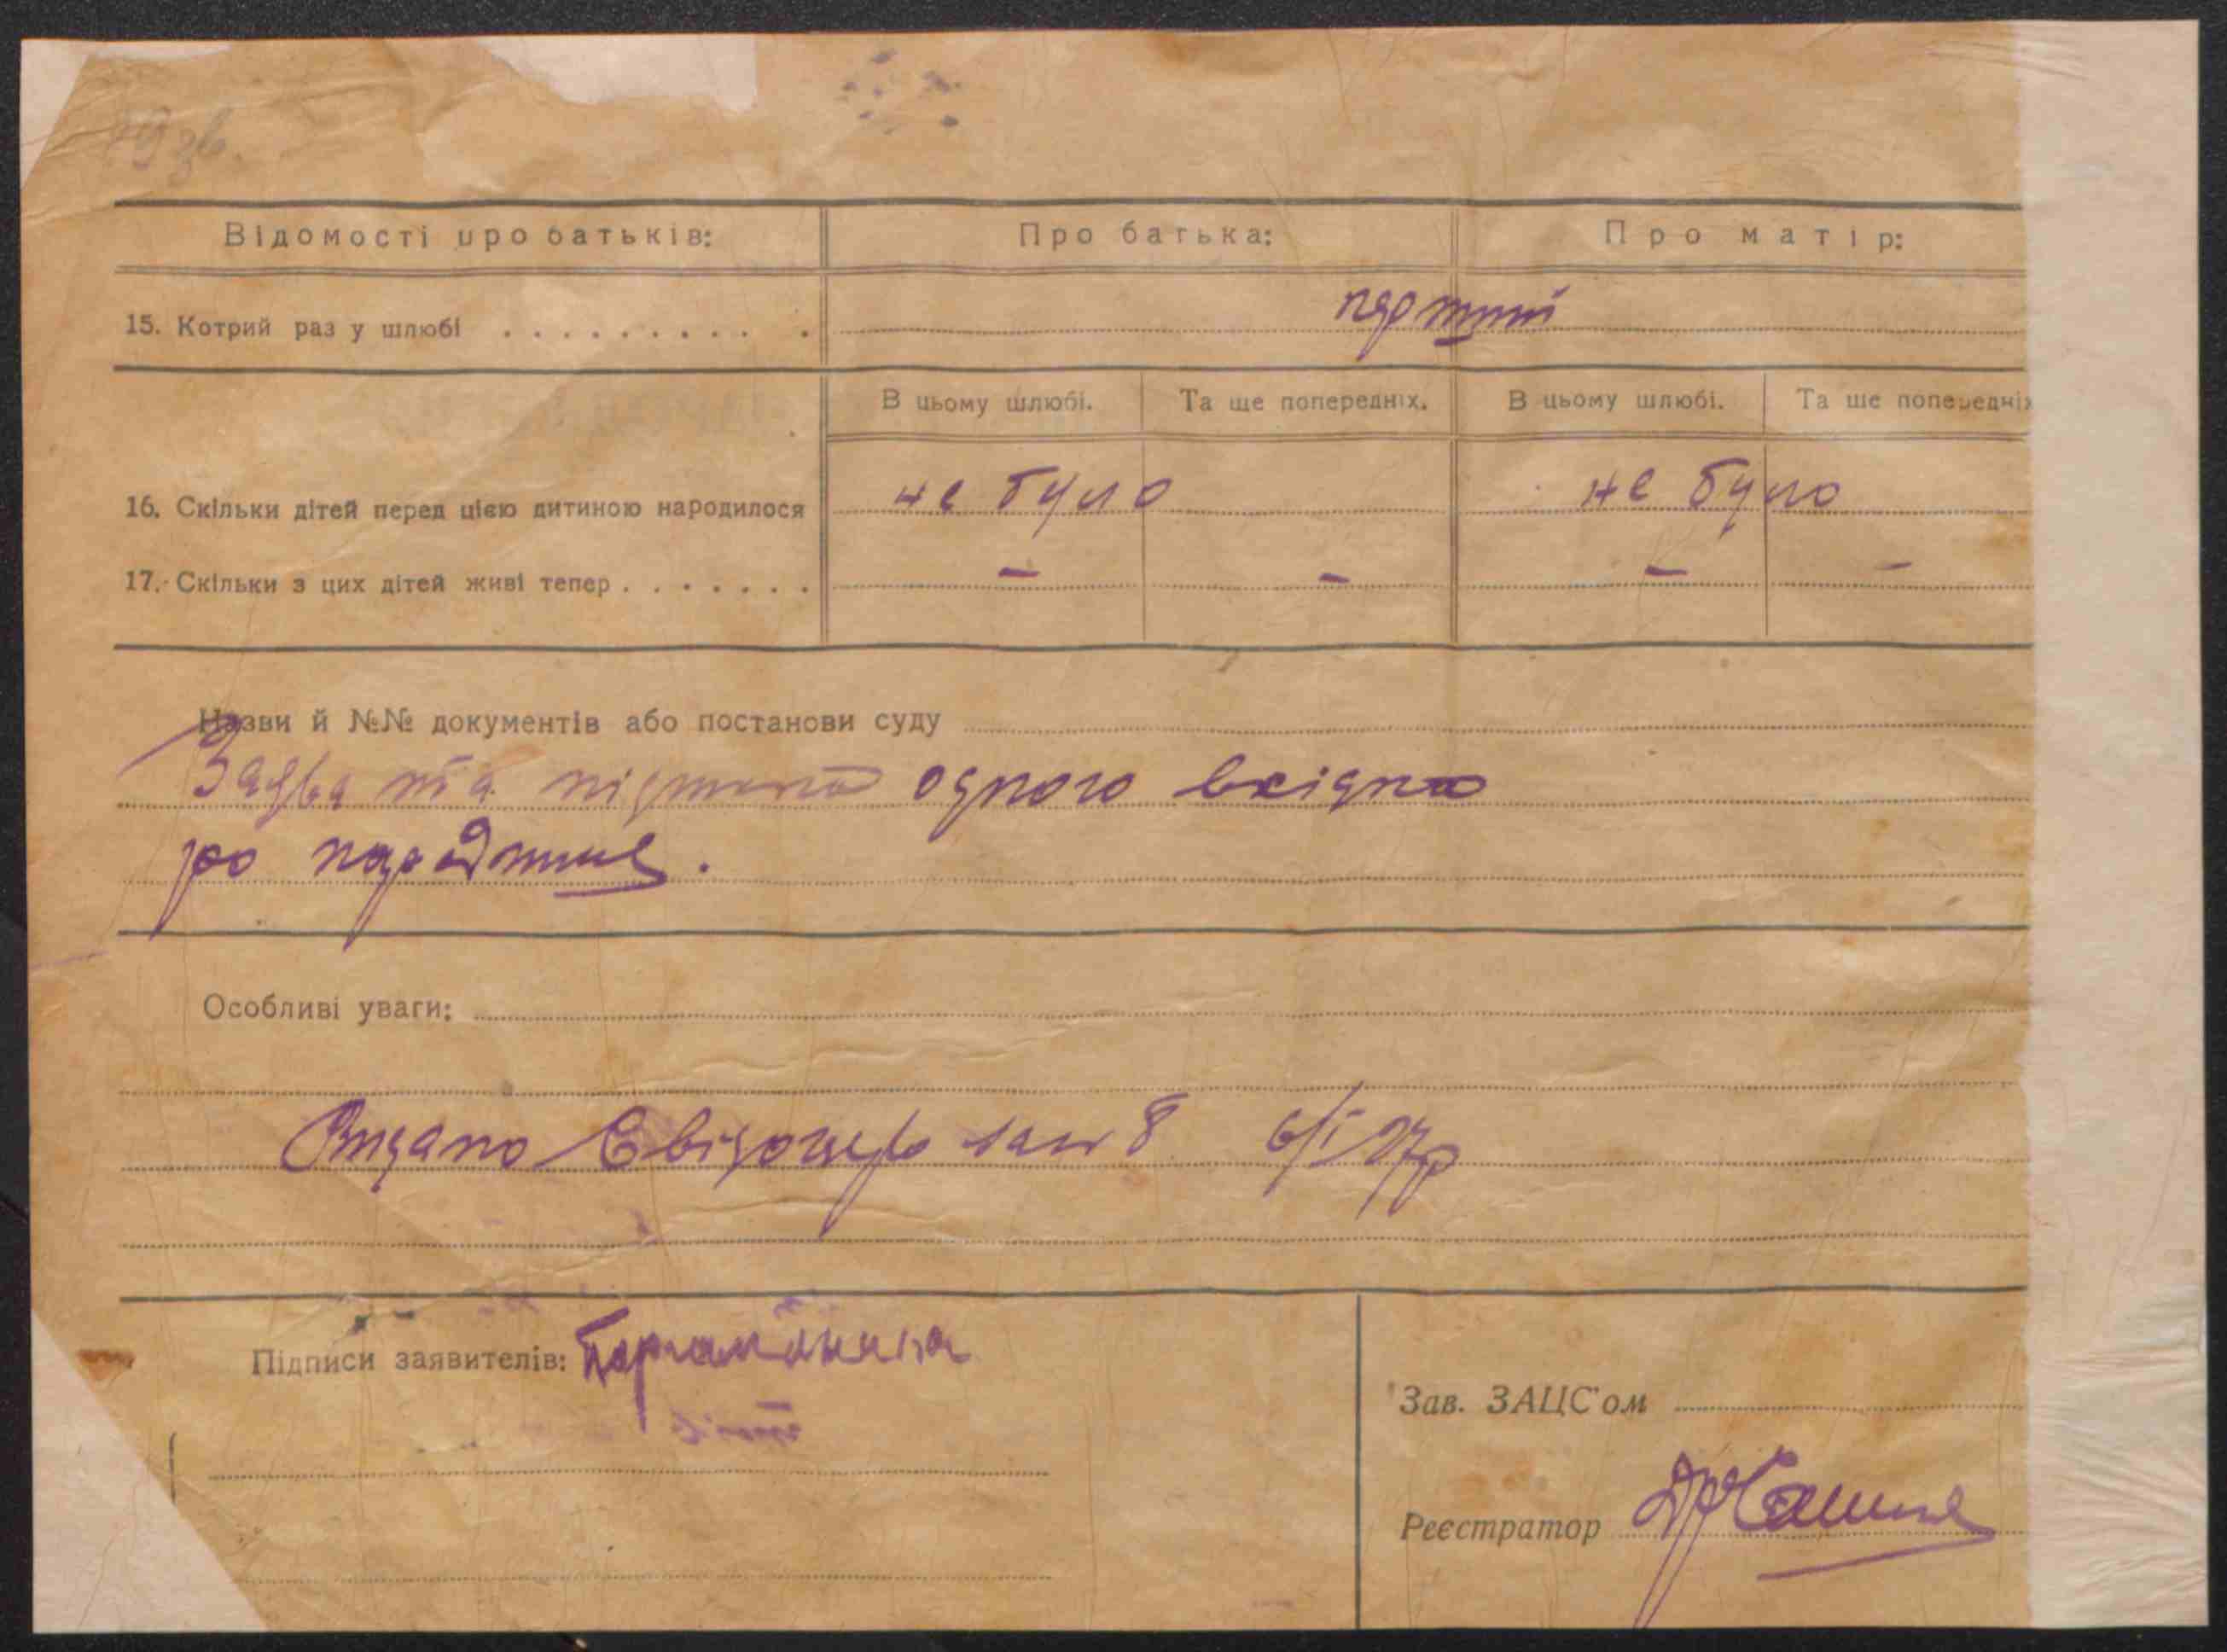 Відомості про батьків: Про батька: Про матір:
15. Котрий раз у шлюбі . . . . . . . . . . перший
В цьому шлюбі. Та ще попередніх. В цьому шлюбі. Та ще попередніх
16. Скільки дітей перед цією дитиною народилося не було не було
17. Скільки з цих дітей живі тепер . . . . . . . – – – –
Назви й №№ документів або постанови суду
Заява та одного свідка
про народження.
Особливі уваги:
Видано Свідоцтво 8 6/I 27р
Підписи заявителів:
Зав. ЗАЦС'ом
Реєстратор